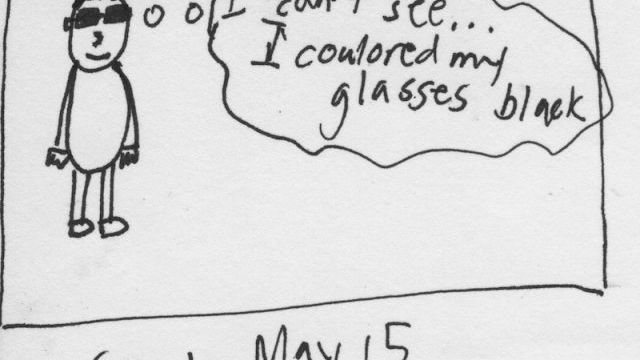 I can't see...
I coulored my
glasses black
May 15